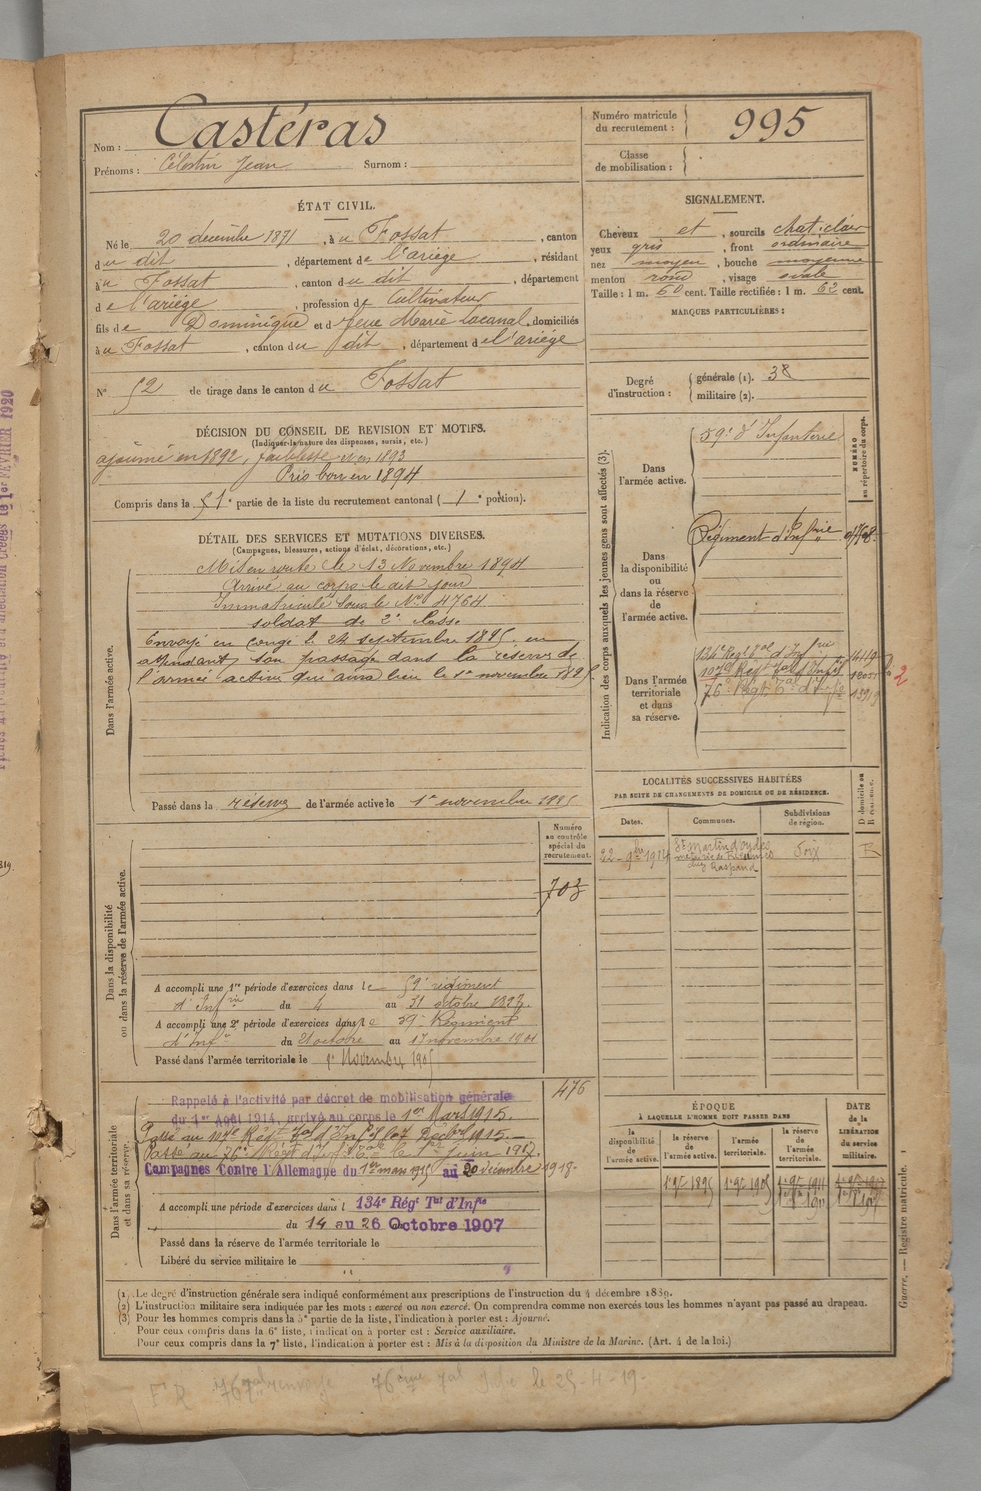 Nom : Castéras
Prénoms : Célestin Jean Surnom :
Numéro matricule du recrutement : 995
Classe de mobilisation :
ÉTAT CIVIL.
Né le 20 décembre 1871, à u Fossat, canton
du dit, département de l'ariège, résidant
à u Fossat, canton du dit, département
de l'ariège, profession de Cultivateur
fils de Dominique et d feue Marie Lacanal, domiciliés
à u Fossat, canton du dit, département de l'ariège
N° 52 de tirage dans le canton du Fossat
SIGNALEMENT.
Cheveux et, sourcils chat. clair
yeux gris, front ordinaire
nez moyen, bouche moyenne
menton rond, visage ovale
Taille : 1 m. 60 cent. Taille rectifiée : 1 m. 62 cent.
MARQUES PARTICULIÈRES :
Degré d'instruction : générale (1). 38
militaire (2).
DÉCISION DU CONSEIL DE REVISION ET MOTIFS.
(Indiquer la nature des dispenses, sursis, etc.)
ajourné en 1892, faiblesse et en 1893
Pris bon en 1894
Compris dans la 51e partie de la liste du recrutement cantonal (1e portion).
DÉTAIL DES SERVICES ET MUTATIONS DIVERSES.
(Campagnes, blessures, actions d'éclat, décorations, etc.)
Dans l'armée active.
Mis en route le 13 Novembre 1894
Arrivé au corps le dit jour
Immatriculé sous le N° 4764
soldat de 2e classe
Envoyé en congé le 24 septembre 1895 en
attendant son passage dans la réserve de
l'armée active qui aura lieu le 1er novembre 1895.
Passé dans la réserve de l'armée active le 1er novembre 1895
Indication des corps auxquels les jeunes gens sont affectés (3).
NUMÉRO au répertoire du corps.
Dans l'armée active.
59e d'Infanterie
Dans la disponibilité ou dans la réserve de l'armée active.
Régiment d'Infrie
Dans l'armée territoriale et dans sa réserve.
134e Régt Tal d'Infrie 14119
107e Régt Tal d'Inf
76e Régt Tal d'Infie 13919
2
LOCALITÉS SUCCESSIVES HABITÉES
PAR SUITE DE CHANGEMENTS DE DOMICILE OU DE RÉSIDENCE.
Dates. Communes. Subdivisions de région. D domicile ou R résidence.
22 9bre 1914 St Martin d'oydes Foix R
chez Gaspard
Dans la disponibilité ou dans la réserve de l'armée active.
Numéro au contrôle spécial du recrutement.
703
A accompli une 1re période d'exercices dans le 59e régiment
d'Infrie du 4 au 31 octobre 1898.
A accompli une 2e période d'exercices dans le 59e Régiment
d'Infie du 21 octobre au 17 novembre 1901
Passé dans l'armée territoriale le 1er Novembre 1905
Dans l'armée territoriale et dans sa réserve.
476
Rappelé à l'activité par décret de mobilisation générale
du 1er Août 1914, arrivé au corps le 1er Mars 1915.
Passé au 107e Régt Tal d'Inf le 7 Décbre 1915.
Passé au 76e Régt d'Inf Tale le 1er Juin 1917.
Campagnes Contre l'Allemagne du 1er mars 1915 au 20 décembre 1918.
A accompli une période d'exercices dans l 134e Régt Tal d'Infie
du 14 au 26 Octobre 1907
Passé dans la réserve de l'armée territoriale le
Libéré du service militaire le
ÉPOQUE À LAQUELLE L'HOMME DOIT PASSER DANS
la disponibilité de l'armée active. la réserve de l'armée active. l'armée territoriale. la réserve de l'armée territoriale.
DATE de la LIBÉRATION du service militaire.
1er 9bre 1895 1er 9bre 1905 1er 9bre 1911
(1) Le degré d'instruction générale sera indiqué conformément aux prescriptions de l'instruction du 4 décembre 1889.
(2) L'instruction militaire sera indiquée par les mots : exercé ou non exercé. On comprendra comme non exercés tous les hommes n'ayant pas passé au drapeau.
(3) Pour les hommes compris dans la 5e partie de la liste, l'indication à porter est : Ajourné.
Pour ceux compris dans la 6e liste, l'indication à porter est : Service auxiliaire.
Pour ceux compris dans la 7e liste, l'indication à porter est : Mis à la disposition du Ministre de la Marine. (Art. 4 de la loi.)
Guerre. — Registre matricule. 1
76ème Tal Infie le 25-4-19-
1er FÉVRIER 1920